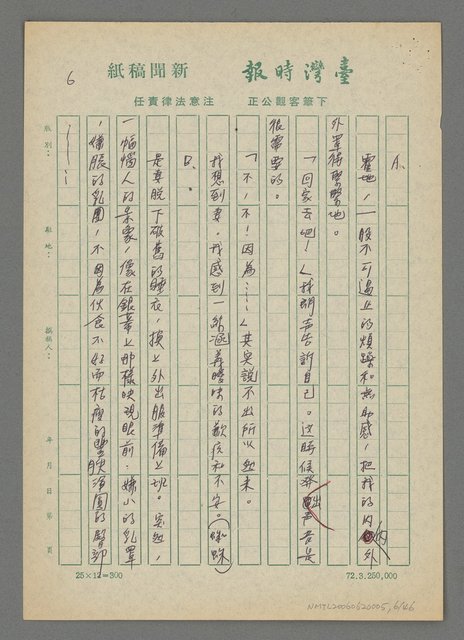 臺灣時報 新聞稿紙
下筆客觀公正 注意法律責任
6
A.
霍地，一股不可遏止的煩躁和無助感，把我的內內外
外罩得緊緊地。
「回家去吧！」我朗聲告訴自己。這時候發出聲音是
很需要的。
「不，不！因為……」其實說不出所以然來。
我想到妻。我感到一陣涵義曖昧的歉疚和不安。（蜘蛛）
B.
是真脫下破舊的睡衣，換上外出服準備上班。突然，
一幅惱人的景象，像在銀幕上那樣映現眼前：嬌小的乳罩
，嬌脹的乳圍，不因為伙食不好而枯瘦的豐腴渾圓的臀部
……
級別：
駐地：
撰稿人：
年 月 日 第 頁
25×12=300
72.3.250,000
NMTL20060620005,6/46